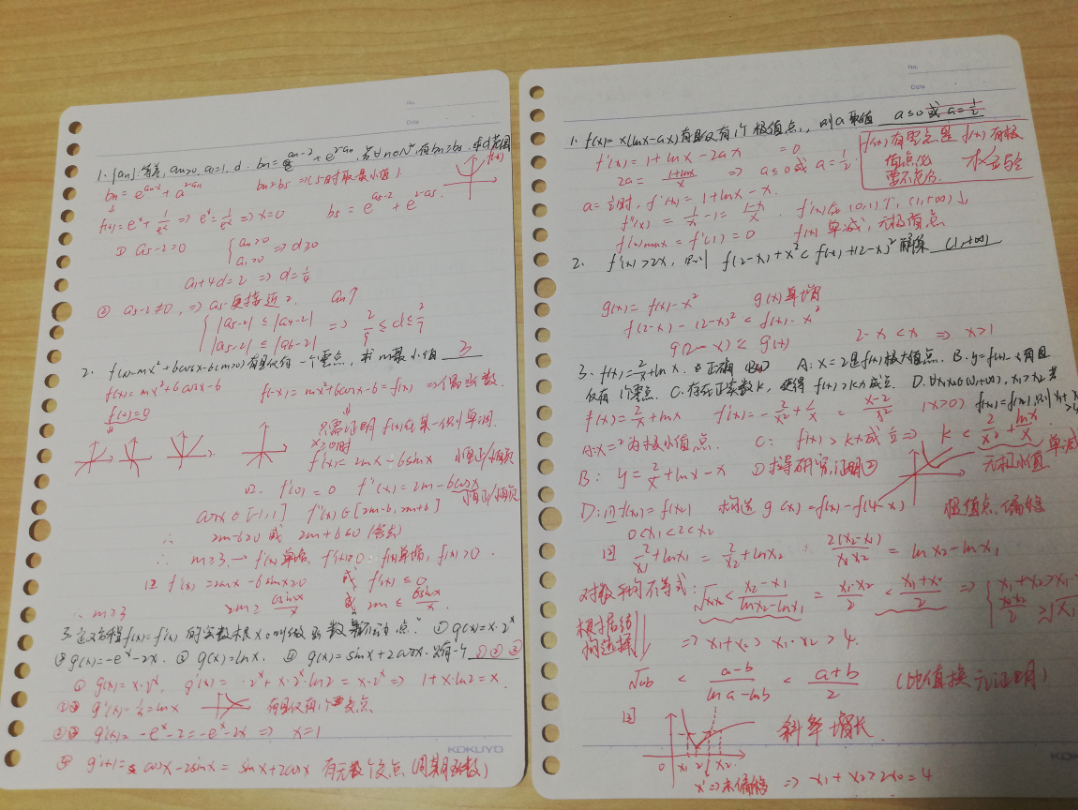 No.
Date
1. {an}等差, an>0, a1=1, d. bn = e^(an-2) + e^(2-an), 若∀n∈N* 有bn≥b5 求d范围
bn = e^(an-2) + e^(2-an) bn≥b5 ⇒ 5时取最小值
f(x)=e^x+1/e^x ⇒ e^x=1/e^x ⇒ x=0 b5 = e^(a5-2) + e^(2-a5)
① a5-2=0 { an>0 a1>0 ⇒ d≥0
a1+4d=2 ⇒ d=1/4
② a5-2≠0, ⇒ a5更接近2. an↑
{ |a5-2| ≤ |a4-2| |a5-2| ≤ |a6-2| ⇒ 2/9 ≤ d ≤ 2/7
2. f(x)=mx²+6cosx-6(m>0)有且仅有一个零点, 求m最小值 3
f(x)=mx²+6cosx-6 f(-x)=mx²+6cosx-6=f(x) ⇒偶函数.
f(0)=0
只需证明f(x)在某一侧单调
x≥0时
f'(x)=2mx-6sinx 恒正/恒负
又. f'(0)=0 f''(x)=2m-6cosx 恒正/恒负
cosx∈[-1,1] f''(x)∈[2m-6, 2m+6]
∴ 2m-6≥0 或 2m+6≤0 (舍去)
∴ m≥3
f'(x)=2mx-6sinx≥0 或 f'(x)≤0
∴ m≥3 2m≥6sinx/x 或 2m≤6sinx/x
3. 定义方程f(x)=f'(x)的实数根x0叫做函数"点" ① g(x)=x·2^x
② g(x)=-e^x-2x. ③ g(x)=lnx. ④ g(x)=sinx+2cosx. 只有一个 ①②③
① g(x)=x·2^x, g'(x)=2^x+x·2^x·ln2=x·2^x ⇒ 1+x·ln2=x.
g'(x)=1/x=lnx 有且仅有1个交点
g'(x)=-e^x-2=-e^x-2x ⇒ x=1
④ g'(x)=cosx-2sinx=sinx+2cosx 有无数个交点(周期函数)
KOKUYO
No.
Date
1. f(x)=x(lnx-ax)有且仅有1个极值点, 则a取值 a≤0或a=1/2
f'(x)=1+lnx-2ax=0
2a=(1+lnx)/x ⇒ a≤0或a=1/2
f'(x)有零点是f(x)有极值点的必要不充分.
a=1/2时, f'(x)=1+lnx-x.
f''(x)=1/x-1=(1-x)/x. f'(x)在(0,1)↑, (1,+∞)↓
f'(x)max=f'(1)=0 f(x)单减, 无极值点
2. f'(x)>2x, 则f(2-x)+x²<f(x)+(2-x)²解集 (1,+∞)
g(x)=f(x)-x² g(x)单增
f(2-x)-(2-x)²<f(x)-x²
g(2-x)<g(x) 2-x<x ⇒ x>1
3. f(x)=2/x+lnx. 正确(BD) A: x=2是f(x)极大值点. B. y=f(x)-x有且
仅有1个零点. C. 存在正实数k, 使得f(x)>kx成立. D. ∀x1,x2∈(0,+∞), x1>x2若
f(x1)=f(x2), 则x1+x2>4
f(x)=2/x+lnx f'(x)=-2/x²+1/x=(x-2)/x² (x>0)
A: x=2为极小值点. C: f(x)>kx成立⇒ k<2/x²+lnx/x
B: y=2/x+lnx-x 无极小值 单减
D: f(x1)=f(x2) 构造g(x)=f(x)-f(4-x) 极值点偏移
0<x1<2<x2
2/x1+lnx1=2/x2+lnx2 2(x2-x1)/(x1x2)=lnx2-lnx1
对数平均不等式: √(x1x2)<(x2-x1)/(lnx2-lnx1)=x1·x2/2<(x1+x2)/2 ⇒
⇒ x1+x2>x1·x2>4.
√ab<(a-b)/(lna-lnb)<(a+b)/2 (比值换元证明)
斜率增长
0 x1 2 x2
⇒ x1+x2>2x0=4
KOKUYO